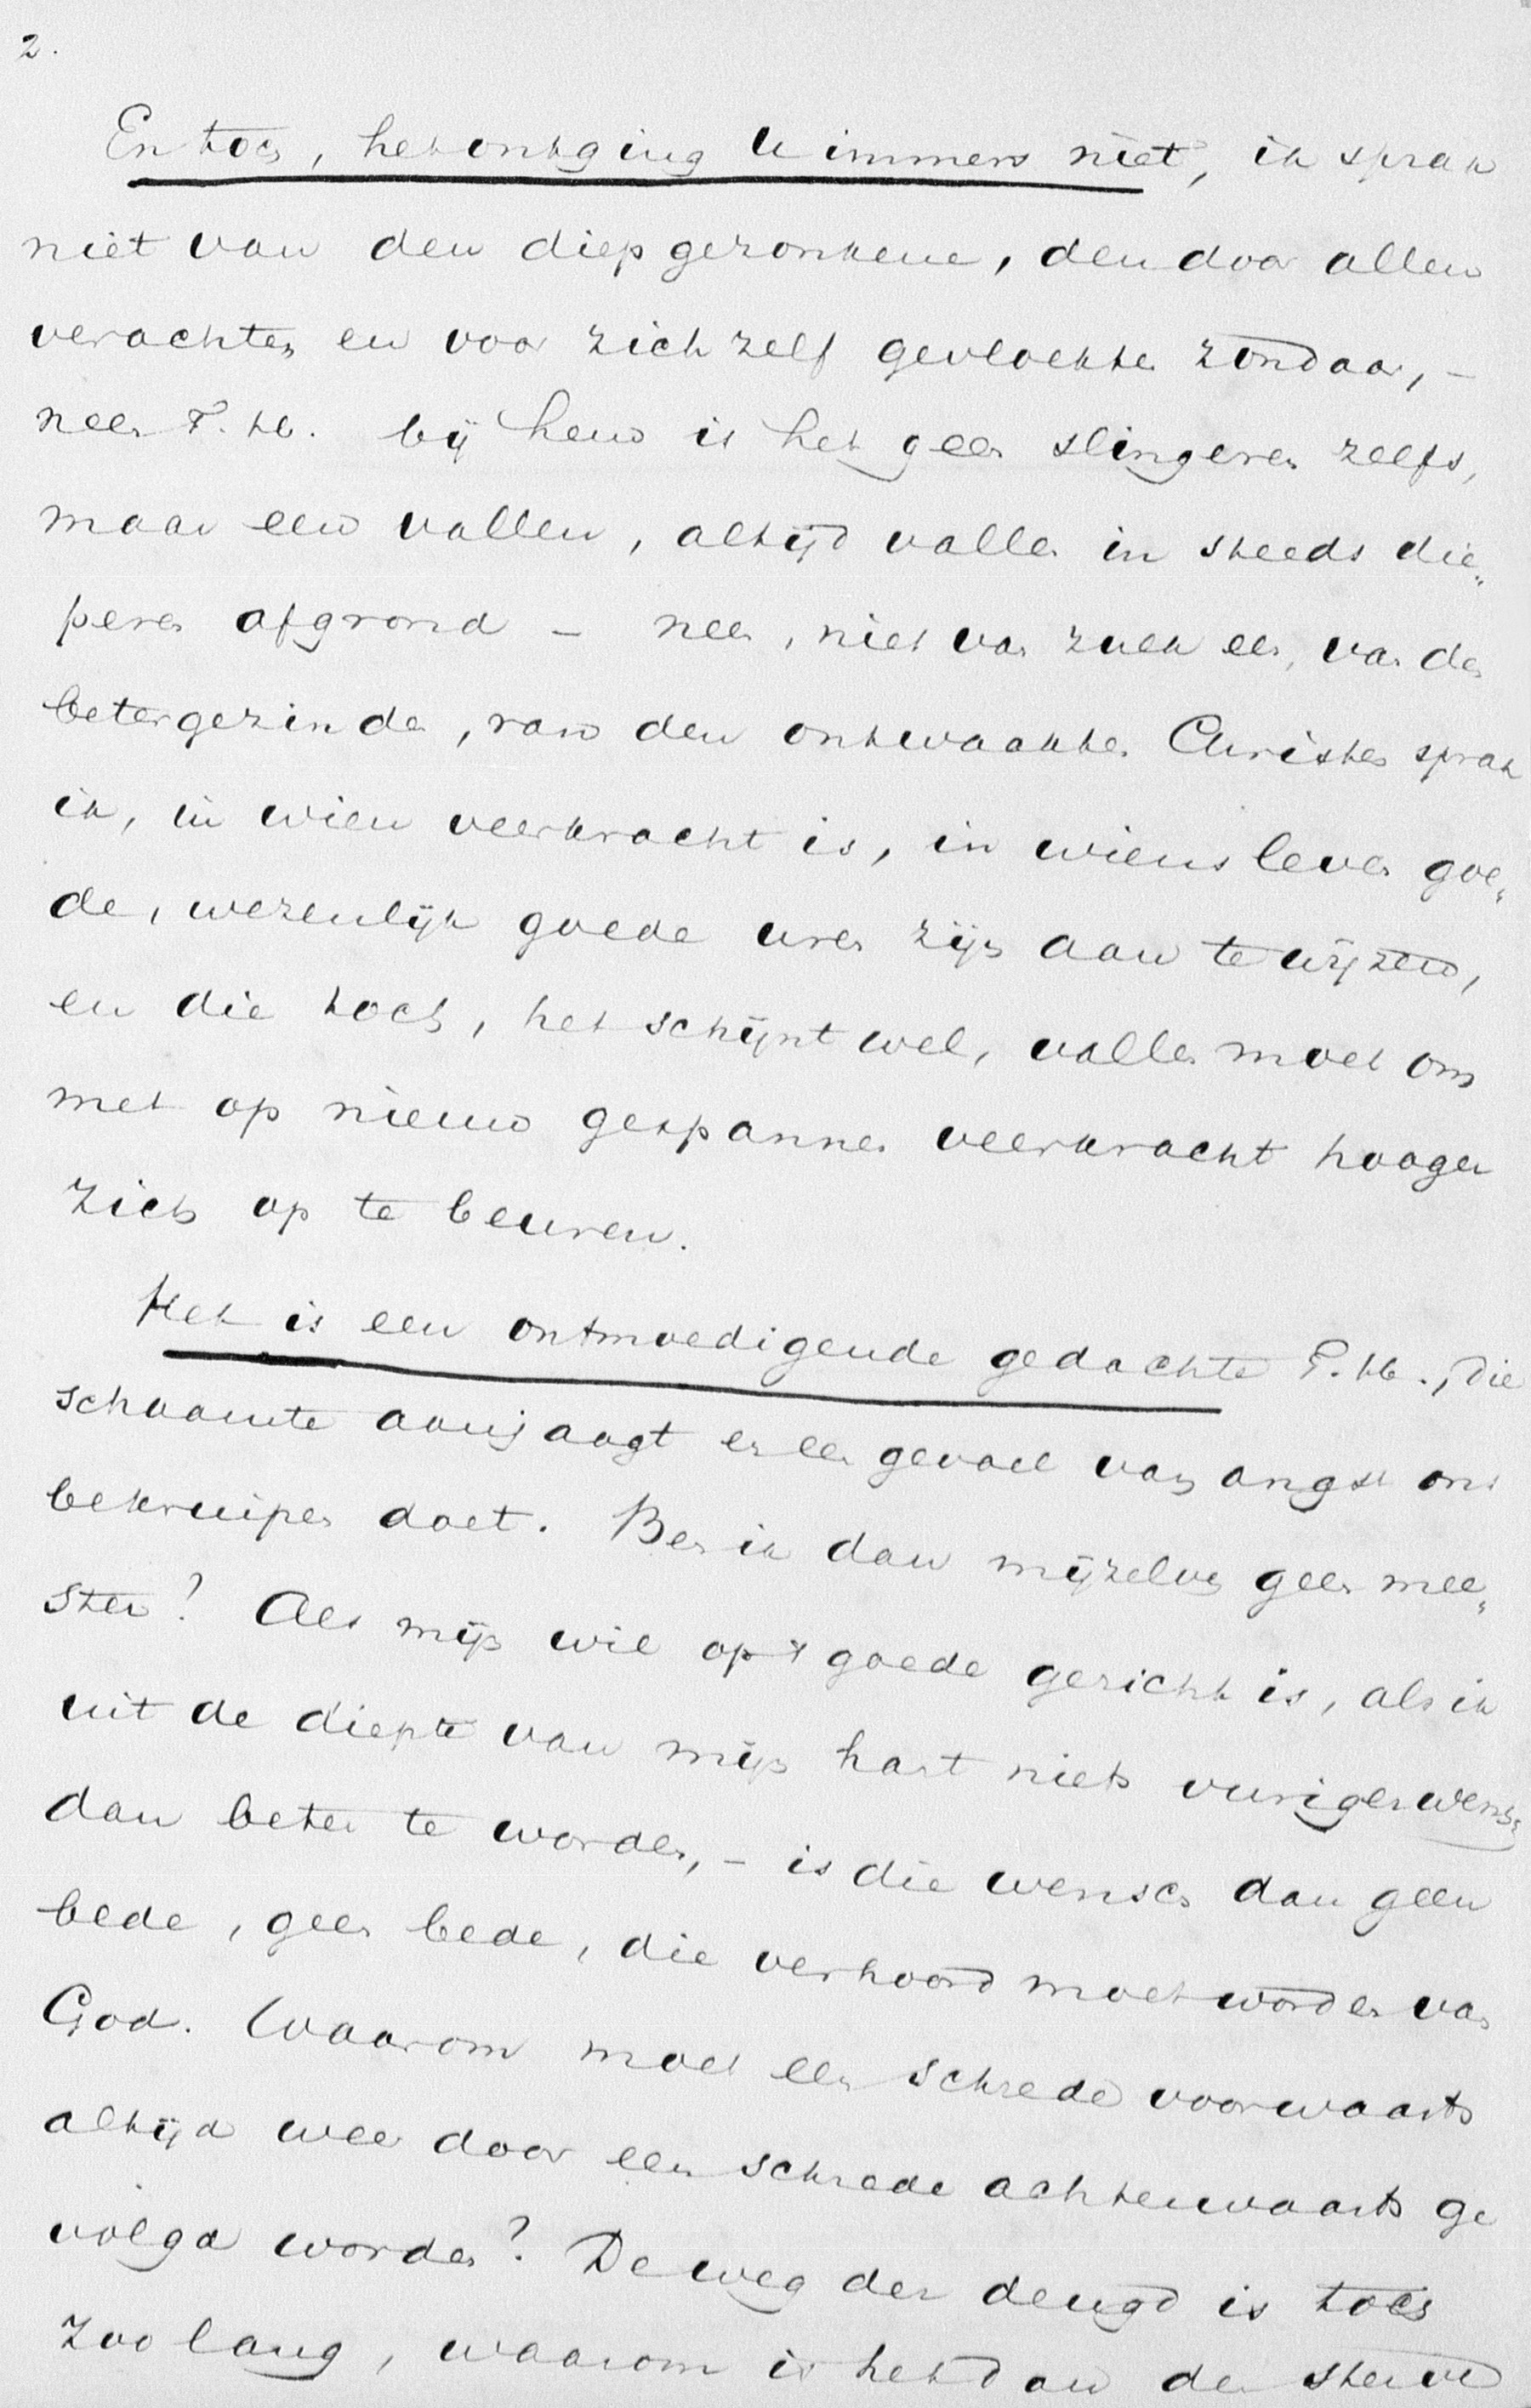 2.
En toch, het ontging U immers niet, ik sprak
niet van den diepgezonkene, den door allen
verachten en door zich zelf gevloekten zondaar, –
neen T. H. bij hem is het geen slingeren zelfs,
maar een vallen, altijd vallen in steeds die„
peren afgrond – neen, niet van zulk een, van den
betergezinde, van den ontwaakten Christen sprak
ik, in wien veerkracht is, in wiens leven goe„
de, wezenlijk goede uren zijn aan te wijzen,
en die toch, het schijnt wel, vallen moet om
met op nieuw gespannen veerkracht hooger
zich op te beuren.
Het is een ontmoedigende gedachte T. H., die
schaamte aanjaagt en een gevoel van angst ons
bekruipen doet. Ben ik dan mijzelven geen mee„
ster? Als mijn wil op 't goede gericht is, als ik
uit de diepte van mijn hart niets vuriger wensch
dan beter te worden, – is die wensch dan geen
bede, geen bede, die verhoord moet worden van
God. Waarom moet een schrede voorwaarts
altijd weer door een schrede achterwaarts ge
volgd worden? De weg der deugd is toch
zoo lang, waarom is het dan den